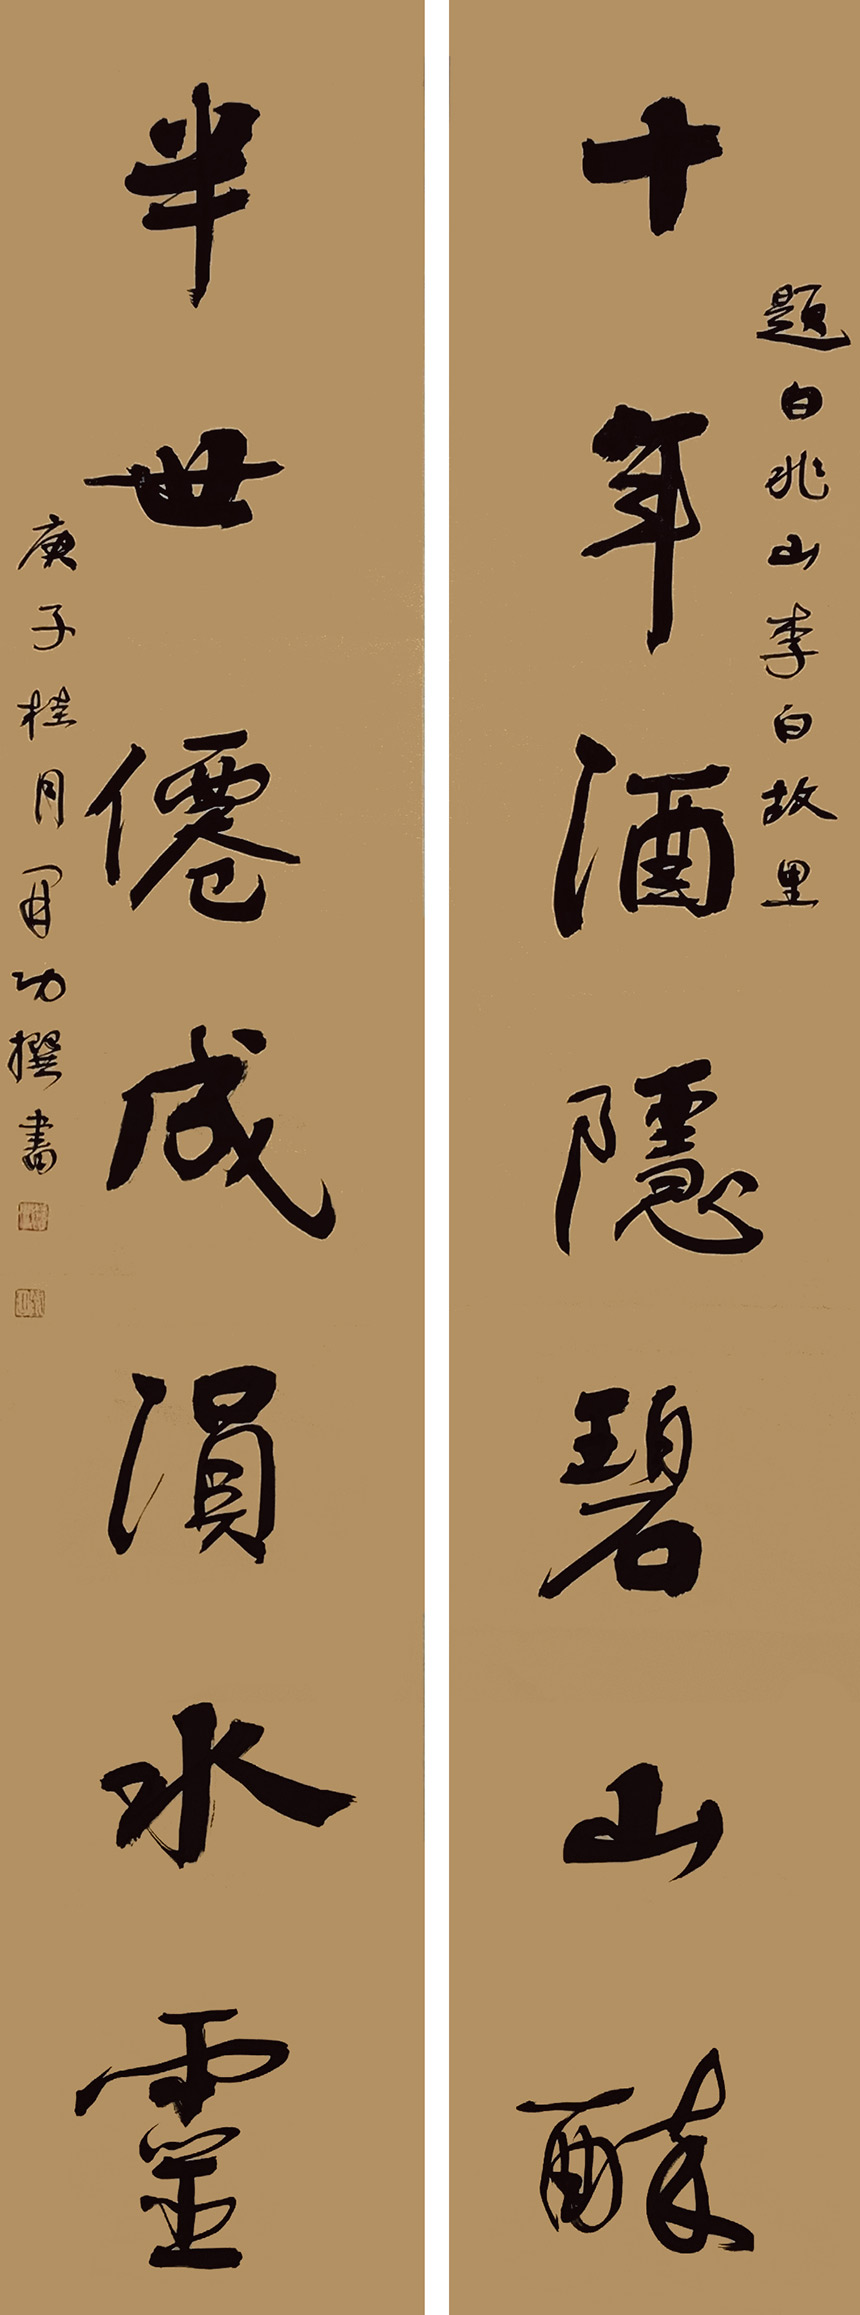 題白兆山李白故里
十年酒隱碧山醉
半世僊成溳水靈
庚子桂月軍功撰書